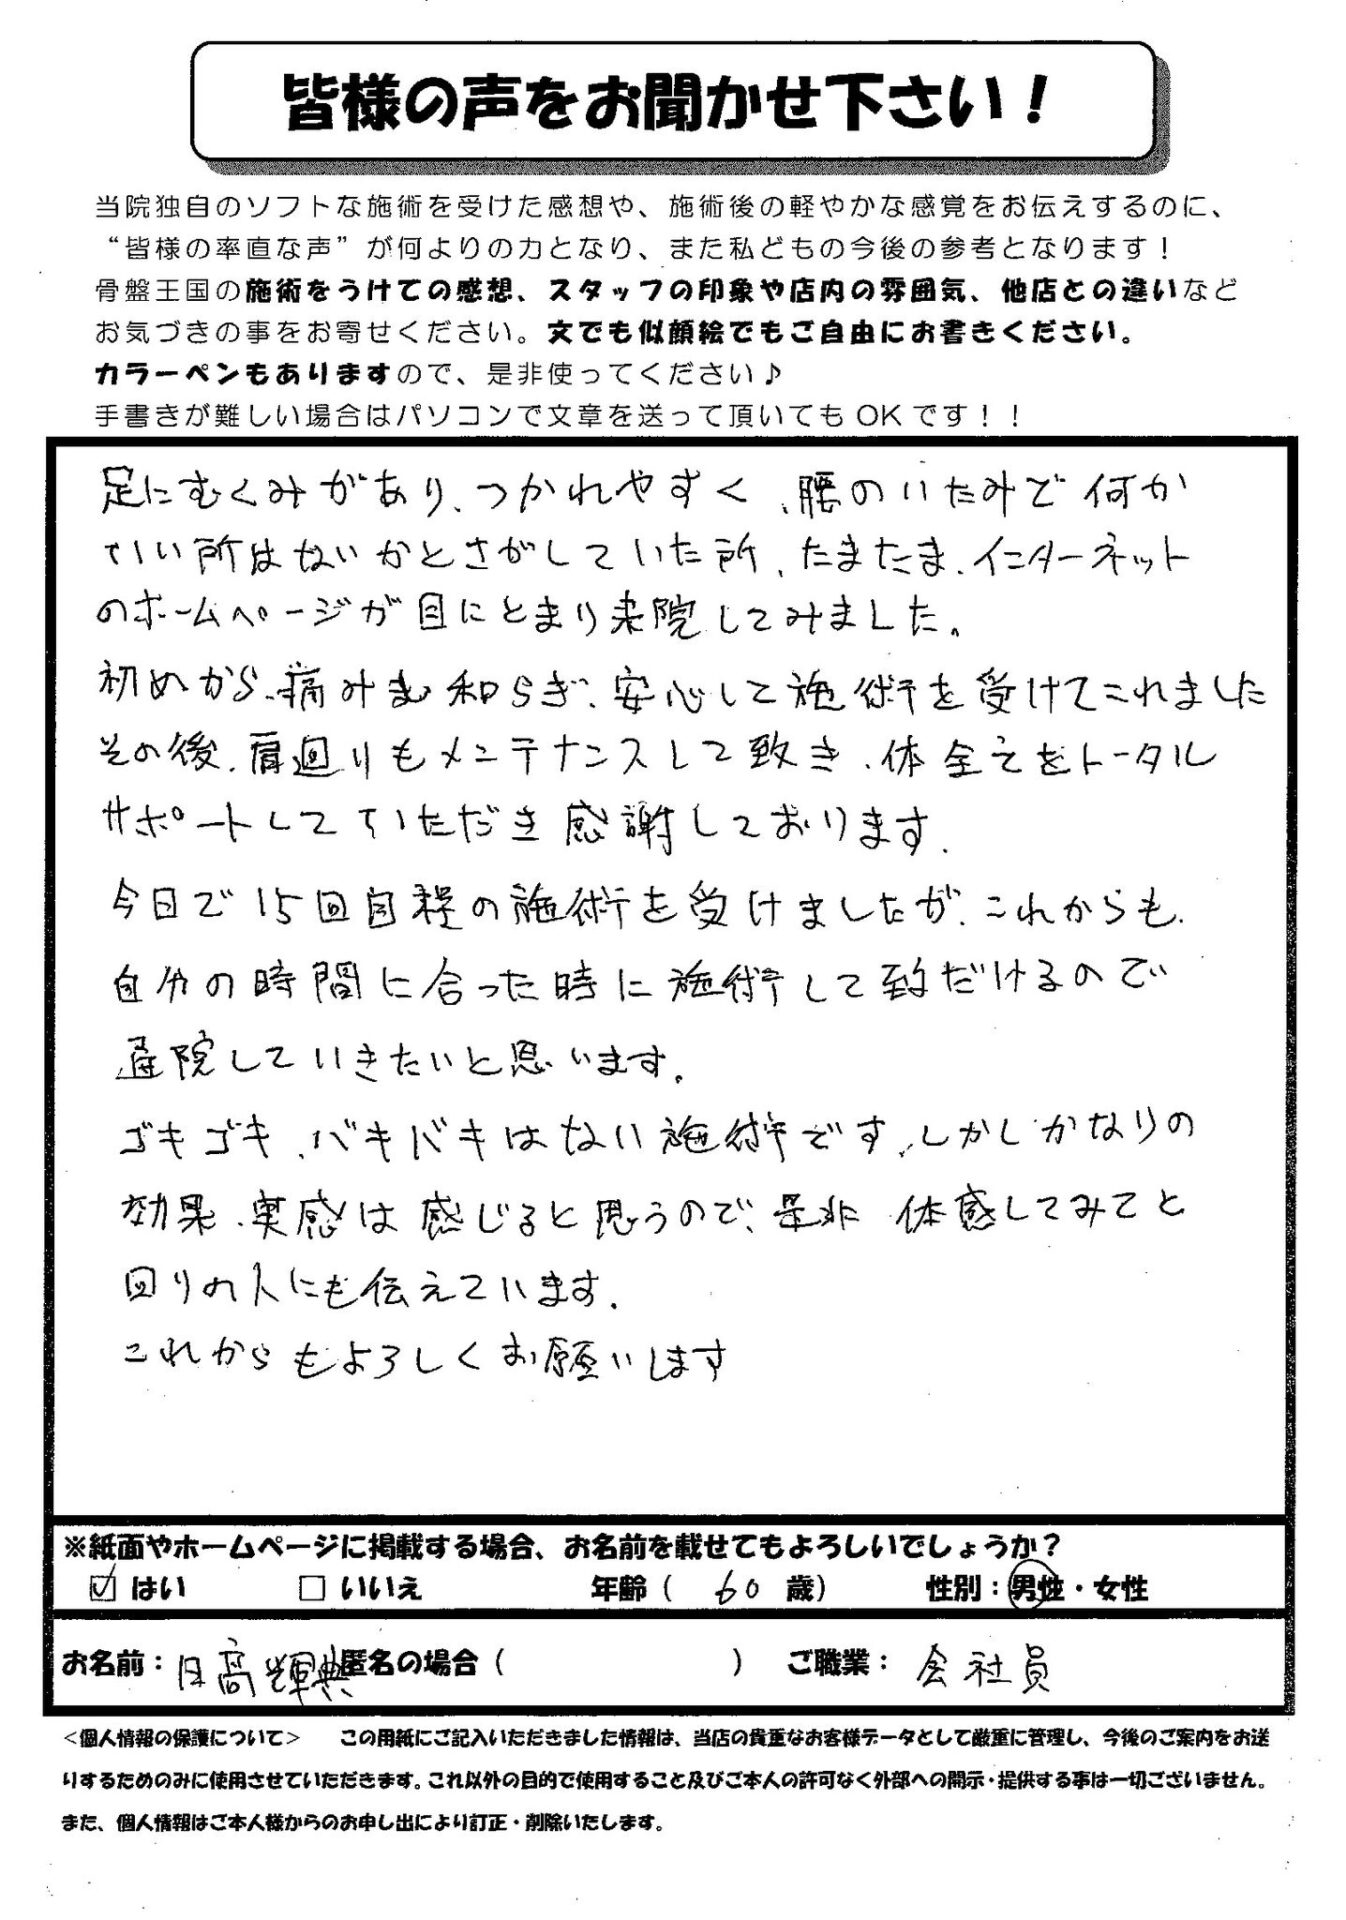 皆様の声をお聞かせ下さい！
当院独自のソフトな施術を受けた感想や、施術後の軽やかな感覚をお伝えするのに、
“皆様の率直な声”が何よりの力となり、また私どもの今後の参考となります！
骨盤王国の施術をうけての感想、スタッフの印象や店内の雰囲気、他店との違いなど
お気づきの事をお寄せください。文でも似顔絵でもご自由にお書きください。
カラーペンもありますので、是非使ってください♪
手書きが難しい場合はパソコンで文章を送って頂いてもOKです！！
足にむくみがあり、つかれやすく、腰のいたみで何か
いい所はないかとさがしていた所、たまたま、インターネット
のホームページが目にとまり来院してみました。
初めから、痛みも和らぎ、安心して施術を受けてこれました
その後、肩廻りもメンテナンスして致き、体全てをトータル
サポートしていただき感謝しております。
今日で15回目程の施術を受けましたが、これからも、
自分の時間に合った時に施術して致だけるので
通院していきたいと思います。
ゴキゴキ、バキバキはない施術です、しかしかなりの
効果、実感は感じると思うので、是非 体感してみてと
回りの人にも伝えています。
これからもよろしくお願いします
※紙面やホームページに掲載する場合、お名前を載せてもよろしいでしょうか？
☑はい □いいえ 年齢（ 60 歳） 性別：男性・女性
お名前：日高輝典 匿名の場合（ ） ご職業：会社員
＜個人情報の保護について＞ この用紙にご記入いただきました情報は、当店の貴重なお客様データとして厳重に管理し、今後のご案内をお送
りするためのみに使用させていただきます。これ以外の目的で使用すること及びご本人の許可なく外部への開示・提供する事は一切ございません。
また、個人情報はご本人様からのお申し出により訂正・削除いたします。